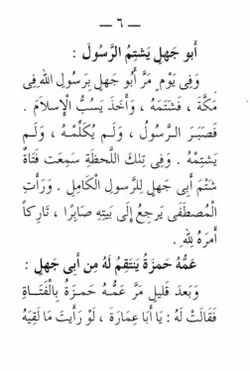 — ٦ —
أَبو جَهلٍ يَشتِمُ الرَّسُولَ :
وَفِي يَوْمٍ مَرَّ أَبو جَهلٍ بِرَسُولِ اللهِ فِي
مَكَّةَ ، فَشَتَمَهُ ، وَأَخَذَ يَسُبُّ الإِسلامَ .
فَصَبَرَ الرَّسُولُ ، وَلَم يُكَلِّمْهُ ، وَلَم
يَشتِمْهُ . وَفِي تِلكَ اللَّحظَةِ سَمِعَت فَتَاةٌ
شَتْمَ أَبِي جَهلٍ لِلرَّسُولِ الكَامِلِ . وَرَأَتِ
المُصطَفَى يَرجِعُ إِلَى بَيتِهِ صَابِرًا ، تَارِكاً
أَمرَهُ لِلّٰهِ .
عَمُّهُ حَمزَةُ يَنتَقِمُ لَهُ مِن أَبِي جَهلٍ :
وَبَعدَ قَلِيلٍ مَرَّ عَمُّهُ حَمزَةُ بِالفَتَاةِ
فَقَالَت لَهُ : يَا أَبَا عِمَارَةَ ، لَوْ رَأَيتَ مَا لَقِيَهُ